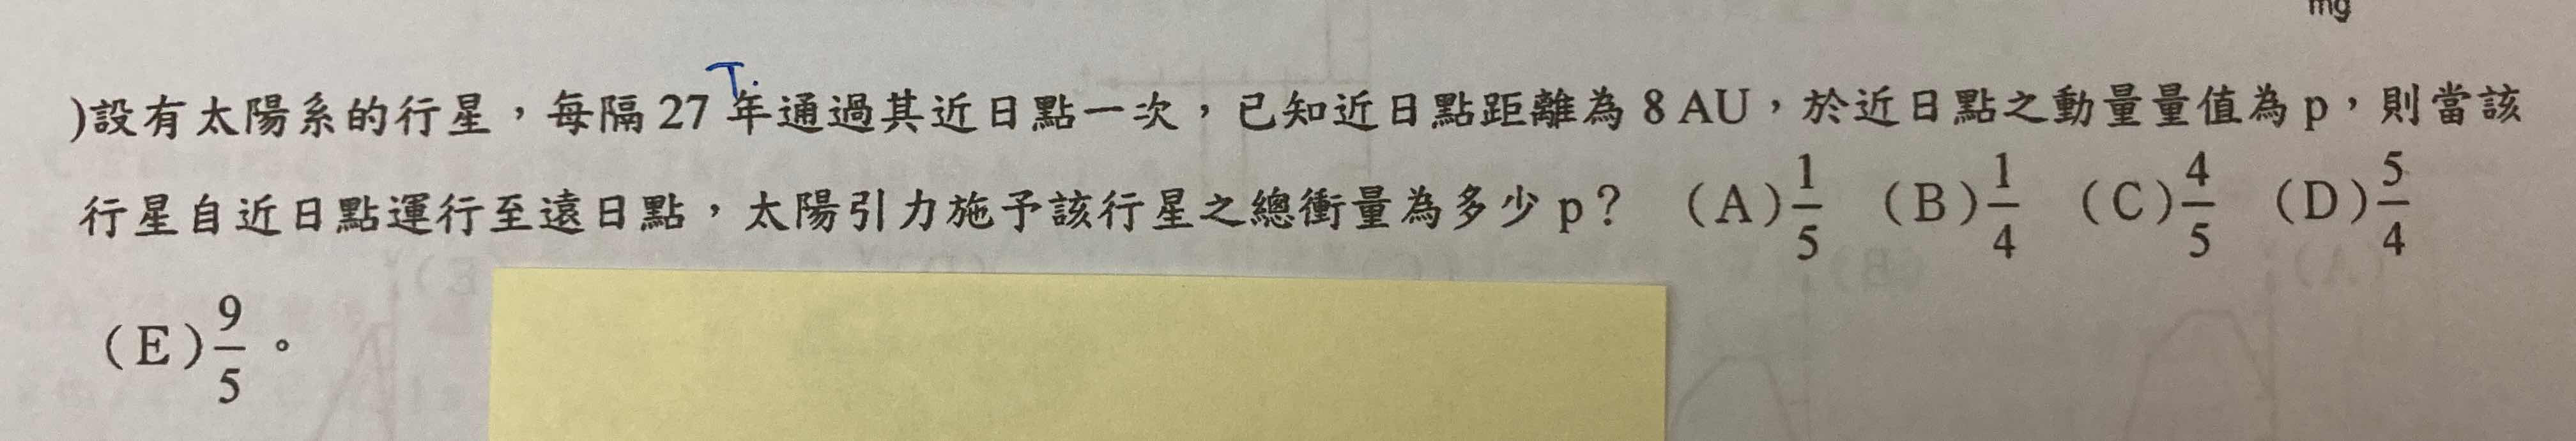 mg
T
)設有太陽系的行星，每隔 27 年通過其近日點一次，已知近日點距離為 8 AU，於近日點之動量量值為 p，則當該
行星自近日點運行至遠日點，太陽引力施予該行星之總衝量為多少 p？ (A) 1/5 (B) 1/4 (C) 4/5 (D) 5/4
(E) 9/5 。